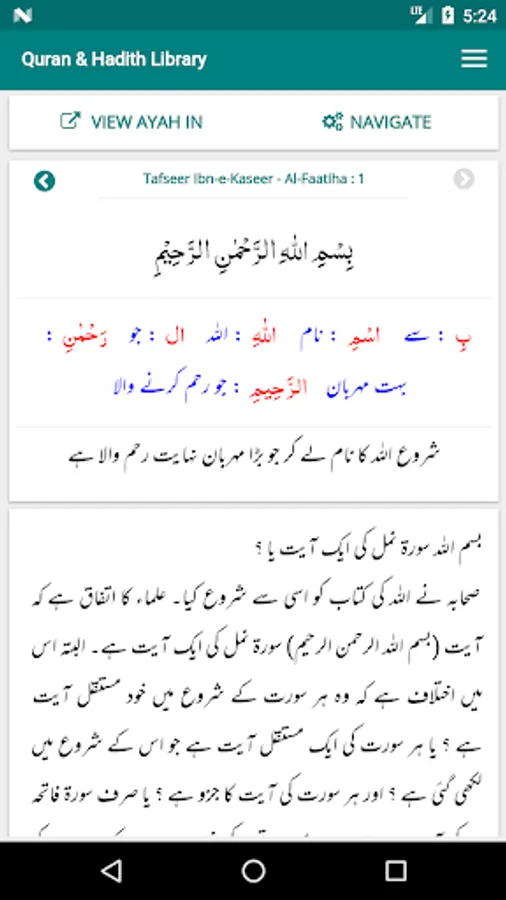 LTE 5:24
Quran & Hadith Library
VIEW AYAH IN NAVIGATE
Tafseer Ibn-e-Kaseer - Al-Faatiha : 1
بِسْمِ اللّٰهِ الرَّحْمٰنِ الرَّحِيْمِ
بِ : سے اسْمِ : نام اللّٰهِ : اللہ ال : جو رَحْمٰنِ :
بہت مہربان الرَّحِيمِ : جو رحم کرنے والا
شروع اللہ کا نام لے کر جو بڑا مہربان نہایت رحم والا ہے
بسم اللہ سورۃ نمل کی ایک آیت یا ؟
صحابہ نے اللہ کی کتاب کو اسی سے شروع کیا۔ علماء کا اتفاق ہے کہ
آیت (بسم اللہ الرحمن الرحیم) سورۃ نمل کی ایک آیت ہے۔ البتہ اس
میں اختلاف ہے کہ وہ ہر سورت کے شروع میں خود مستقل آیت
ہے ؟ یا ہر سورت کی ایک مستقل آیت ہے جو اس کے شروع میں
لکھی گئی ہے ؟ اور ہر سورت کی آیت کا جزو ہے ؟ یا صرف سورۃ فاتحہ